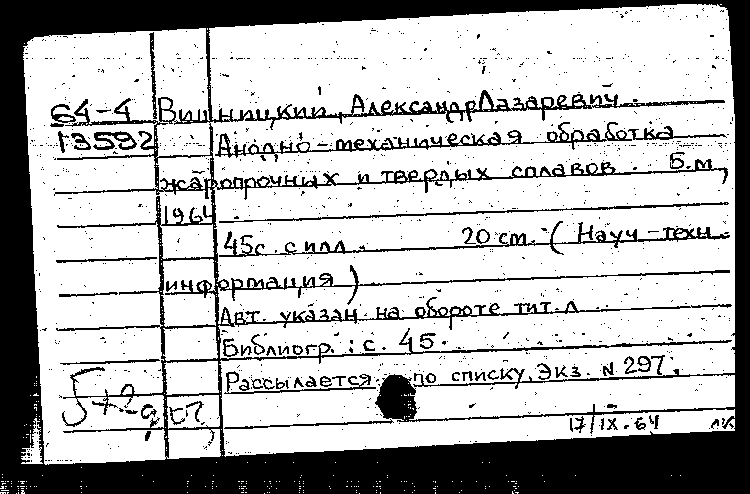 64-4 Винницкий, Александр Лазаревич.
13592 Анодно-механическая обработка
жаропрочных и твердых сплавов. Б.м,
1964.
45с. с илл. 20 см. (Науч-техн.
информация)
Авт. указан на обороте тит. л
Библиогр.: с. 45.
Рассылается по списку. Экз. N 297.
17/IX-64